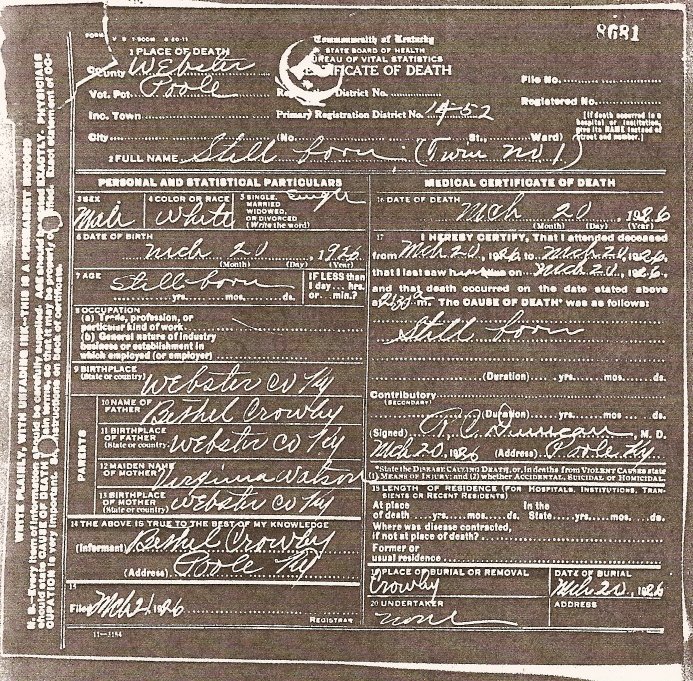 8681
FORM V. S. 1 500M 6 20-11
Commonwealth of Kentucky
STATE BOARD OF HEALTH
BUREAU OF VITAL STATISTICS
CERTIFICATE OF DEATH
1 PLACE OF DEATH
County Webster
Vot. Pct. Poole
Inc. Town
City
Registration District No.
Primary Registration District No. 1452
(No. St., Ward)
File No.
Registered No.
[If death occurred in a
hospital or institution,
give its NAME instead of
street and number.]
2 FULL NAME Still born (Twin no 1)
PERSONAL AND STATISTICAL PARTICULARS
3 SEX
Male
4 COLOR OR RACE
White
5 SINGLE,
MARRIED
WIDOWED,
OR DIVORCED
(Write the word)
Single
6 DATE OF BIRTH
Mch 20, 1926
(Month) (Day) (Year)
7 AGE
Still born
yrs. mos. ds.
IF LESS than
1 day... hrs.
or... min.?
8 OCCUPATION
(a) Trade, profession, or
particular kind of work
(b) General nature of industry
business or establishment in
which employed (or employer)
9 BIRTHPLACE
(State or country) Webster Co Ky
PARENTS
10 NAME OF
FATHER Bethel Crowley
11 BIRTHPLACE
OF FATHER
(State or country) Webster Co Ky
12 MAIDEN NAME
OF MOTHER Virginia Watson
13 BIRTHPLACE
OF MOTHER
(State or country) Webster Co Ky
14 THE ABOVE IS TRUE TO THE BEST OF MY KNOWLEDGE
(Informant) Bethel Crowley
(Address) Poole Ky
15
Filed Mch 21 1926
REGISTRAR
11-3184
MEDICAL CERTIFICATE OF DEATH
16 DATE OF DEATH
Mch 20, 1926
(Month) (Day) (Year)
17 I HEREBY CERTIFY, That I attended deceased
from Mch 20, 1926 to Mch 20, 1926,
that I last saw h on Mch 20, 1926,
and that death occurred on the date stated above
at m. The CAUSE OF DEATH* was as follows:
Still born
(Duration) yrs. mos. ds.
Contributory
(SECONDARY)
(Duration) yrs. mos. ds.
(Signed) P. C. Duncan, M. D.
Mch 20, 1926 (Address) Poole Ky.
*State the DISEASE CAUSING DEATH, or, in deaths from VIOLENT CAUSES state
(1) MEANS OF INJURY; and (2) whether ACCIDENTAL, SUICIDAL OR HOMICIDAL.
18 LENGTH OF RESIDENCE (FOR HOSPITALS, INSTITUTIONS, TRAN-
SIENTS OR RECENT RESIDENTS)
At place In the
of death yrs. mos. ds. State yrs. mos. ds.
Where was disease contracted,
if not at place of death?
Former or
usual residence
19 PLACE OF BURIAL OR REMOVAL
Crowley
DATE OF BURIAL
Mch 20, 1926
20 UNDERTAKER
none
ADDRESS
WRITE PLAINLY, WITH UNFADING INK—THIS IS A PERMANENT RECORD